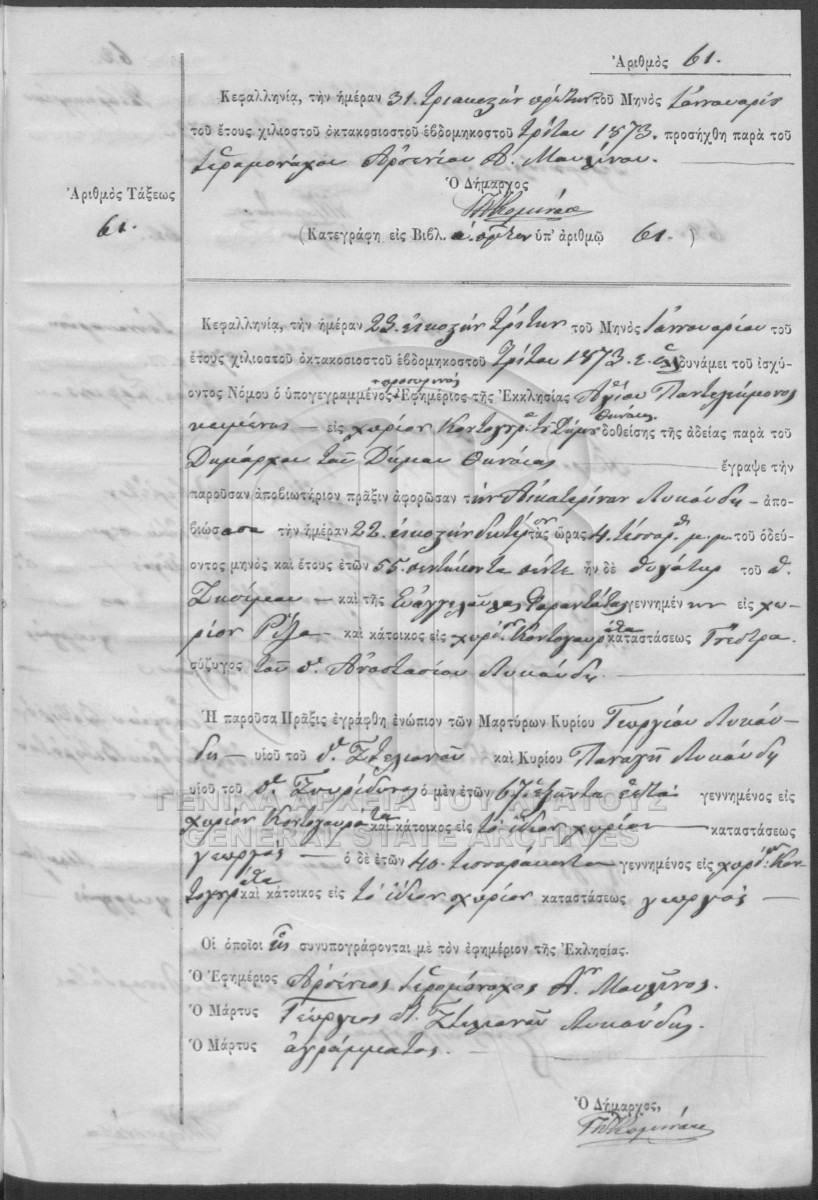 Ἀριθμὸς 61.
Κεφαλληνία, τὴν ἡμέραν 31. τριακοστὴν πρώτην τοῦ Μηνὸς Ἰαννουαρίου
τοῦ ἔτους χιλιοστοῦ ὀκτακοσιοστοῦ ἑβδομηκοστοῦ τρίτου 1873. προσήχθη παρὰ τοῦ
ἱερομονάχου Ἀρσενίου
Ὁ Δήμαρχος
Ἀριθμὸς Τάξεως
61.
(Κατεγράφη εἰς Βιβλ. πρῶτον ὑπ' ἀριθμῷ 61.)
Κεφαλληνία, τὴν ἡμέραν 23. εἰκοστὴν τρίτην τοῦ Μηνὸς Ἰαννουαρίου τοῦ
ἔτους χιλιοστοῦ ὀκτακοσιοστοῦ ἑβδομηκοστοῦ τρίτου 1873. δυνάμει τοῦ ἰσχύ-
οντος Νόμου ὁ ὑπογεγραμμένος προσωρινὸς Ἐφημέριος τῆς Ἐκκλησίας Ἁγίου Παντελεήμονος
κειμένης — εἰς χωρίον δοθείσης τῆς ἀδείας παρὰ τοῦ
Δημάρχου τοῦ Δήμου — ἔγραψε τὴν
παροῦσαν ἀποβιωτήριον πρᾶξιν ἀφορῶσαν τὴν Αἰκατερίναν Λυκούδη — ἀπο-
βιώσασα τὴν ἡμέραν 22. εἰκοστὴν δευτέραν τὰς ὥρας 4. τέσσαρας μ.μ. τοῦ ὁδεύ-
οντος μηνὸς καὶ ἔτους ἐτῶν 55. πεντήκοντα πέντε ἦν δὲ θυγάτηρ τοῦ π.
Ζησίμου — καὶ τῆς Εὐαγγελούλας γεννημένην εἰς χω-
ρίον — καὶ κάτοικος εἰς χωρίον καταστάσεως
σύζυγος τοῦ π. Ἀναστασίου Λυκούδη. —
Ἡ παροῦσα Πρᾶξις ἐγράφθη ἐνώπιον τῶν Μαρτύρων Κυρίου Γεωργίου Λυκού-
δη — υἱοῦ τοῦ π. Στελιανοῦ καὶ Κυρίου Παναγῆ Λυκούδη
υἱοῦ τοῦ π. Σπυρίδωνος ὁ μὲν ἐτῶν 67. ἑξῆντα ἑπτὰ γεννημένος εἰς
χωρίον καὶ κάτοικος εἰς τὸ ἴδιον χωρίον — καταστάσεως
γεωργὸς — ὁ δὲ ἐτῶν 40. τεσσαράκοντα γεννημένος εἰς χωρίον
καὶ κάτοικος εἰς τὸ ἴδιον χωρίον καταστάσεως γεωργὸς —
Οἱ ὁποῖοι συνυπογράφονται μὲ τὸν ἐφημέριον τῆς Ἐκλησίας.
Ὁ Ἐφημέριος Ἀρσένιος ἱερομόναχος
Ὁ Μάρτυς Γεώργιος π. Στελιανοῦ Λυκούδης.
Ὁ Μάρτυς ἀγράμματος. —
Ὁ Δήμαρχος,
ΓΕΝΙΚΑ ΑΡΧΕΙΑ ΤΟΥ ΚΡΑΤΟΥΣ
GENERAL STATE ARCHIVES